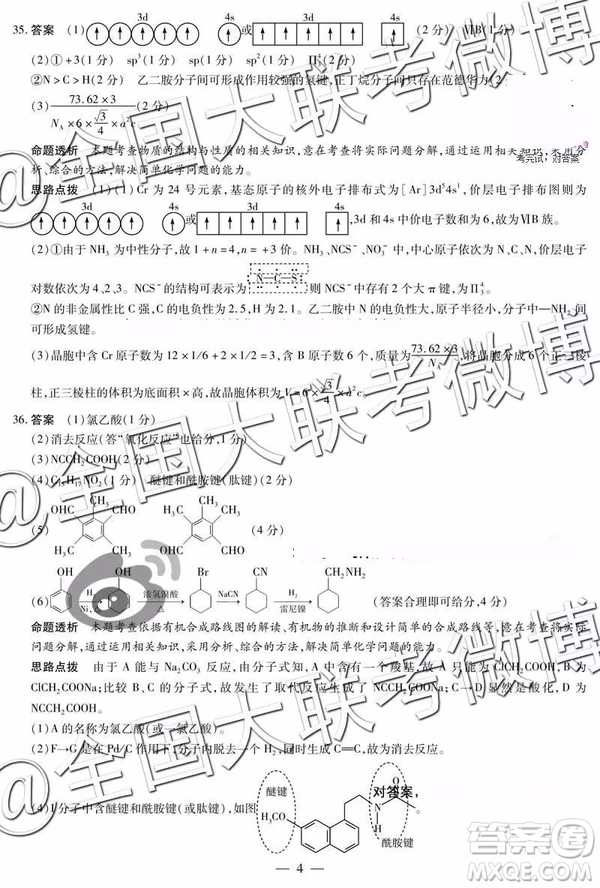 35. 答案 (1) 3d 4s 或 3d 4s (2分) ⅥB(1分)
(2)①+3(1分) sp³(1分) sp²(1分) sp(1分)
②N>C>H(2分) 乙二胺分子间可形成作用较强的氢键,正丁烷分子间只存在范德华力(2
(3) 73.62×3 / N_A×6×√3/4×a²c (2分)
命题透析 本题考查物质的结构与性质的相关知识,意在考查将实际问题分解,通过运用相关知识,采用分
析、综合的方法,解决简单化学问题的能力。
考完试,对答案
思路点拨 (1)(1)Cr 为 24 号元素,基态原子的核外电子排布式为[Ar]3d⁵4s¹,价层电子排布图则为
3d 4s 或 3d 4s ,3d 和 4s 中价电子数和为 6,故为ⅥB 族。
(2)①由于 NH₃ 为中性分子,故 1+n=4,n=+3。NH₃、NCS⁻、NO₃⁻ 中,中心原子依次为 N、C、N,价层电子
对数依次为 4、2、3。NCS⁻ 的结构可表示为 N—C—S ,则 NCS⁻ 中存在 2 个大 π 键,为 Π₃⁴。
②N 的非金属性比 C 强,C 的电负性为 2.5,H 为 2.1。乙二胺中 N 原子的电负性大,原子半径小,分子中—NH₂ 间
可形成氢键。
(3)晶胞中含 Cr 原子数为 12×1/6+2×1/2+3=6,故晶胞的质量为 73.62×3 / N_A g,将晶胞分割为 6 个正三棱
柱,正三棱柱的体积为底面积×高,故晶胞体积为 V=6×√3/4 a²c。
36. 答案 (1)氯乙酸(1分)
(2)消去反应(答“氧化反应”也给分,1分)
(3)NCCH₂COOH(2分)
(4)C₁₅H₁₇NO₂(1分) 醚键和酰胺键(肽键)(2分)
(5) OHC CH₃ CHO H₃C CH₃ CH₃ H₃C CH₃ OHC CHO (4分)
(6) OH H₂ Ni,△ OH 浓氢溴酸 △ Br NaCN CN H₂ 雷尼镍 CH₂NH₂ (答案合理即可给分,4分)
命题透析 本题考查依据有机合成路线图的解读、有机物的推断和设计简单的合成路线等,意在考查将实
际问题分解,通过运用相关知识,采用分析、综合的方法,解决简单化学问题的能力。
思路点拨 由于 A 能与 Na₂CO₃ 反应,由 A 的分子式,故 A 中含有一个羧基,故 A 为 ClCH₂COOH,B 为
ClCH₂COONa。由 C 的分子式,故发生了取代反应生成了 NCCH₂COONa,故 C→D 显然是酸化,D 为
NCCH₂COOH。
(1)A 的名称为氯乙酸(1分)。
(2)F→G 是在 Pd/C 作用下,F 分子内脱去一个 H₂,同时生成 C═C,故为消去反应。
(4)I 分子中含醚键和酰胺键(或肽键),如图
醚键
H₃CO
N
H
O
对答案,
酰胺键
— 4 —
@全国大联考微博
@全国大联考微博
@全国大联考微博
答案圈
MXQE.COM